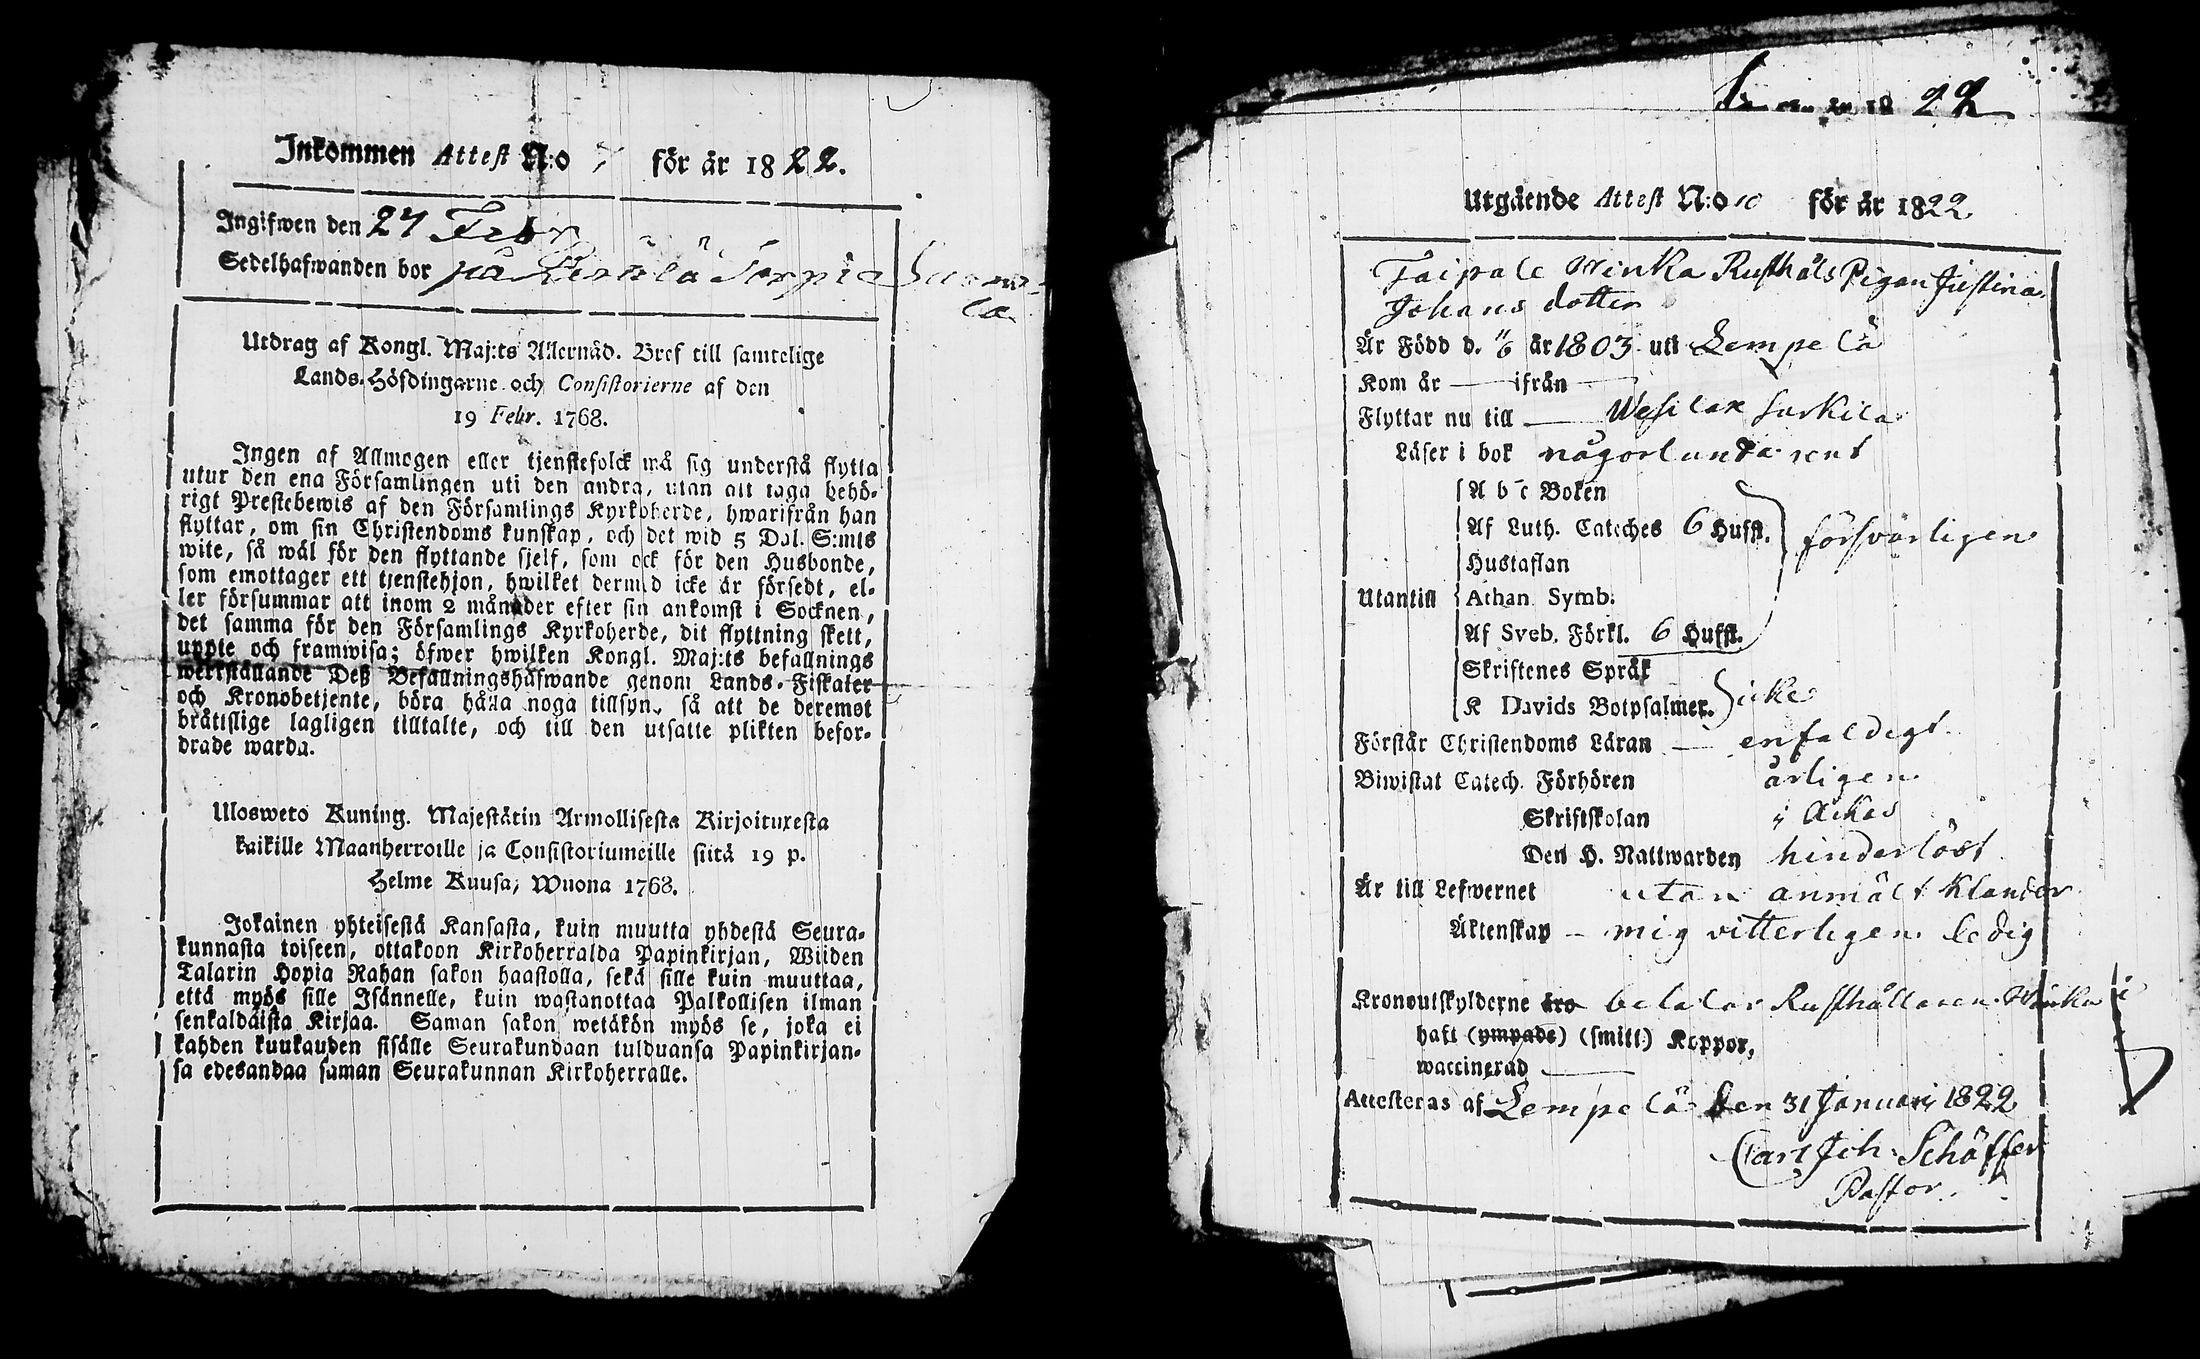 Inkommen Attest N:o 7 för år 1822.
Ingifwen den 27 Febr
Sedelhafwanden bor på
Utdrag af Kongl. Maj:ts Allernåd. Bref till samtelige
Lands-Höfdingarne och Consistorierne af den
19 Febr. 1768.
Ingen af Allmogen eller tjenstefolck må sig understå flytta
utur den ena Församlingen uti den andra, utan att taga behö-
rigt Prestebewis af den Församlings Kyrkoherde, hwarifrån han
flyttar, om sin Christendoms kunskap, och det wid 5 Dal. S:mts
wite, så wäl för den flyttande sjelf, som ock för den Husbonde,
som emottager ett tjenstehjon, hwilket dermed icke är försedt, el-
ler försummar att inom 2 månader efter sin ankomst i Socknen,
det samma för den Församlings Kyrkoherde, dit flyttning skett,
uppte och framwisa; öfwer hwilken Kongl. Maj:ts befallnings
werkställande Deß Befallningshafwande genom Lands-Fiskaler
och Kronobetjente, böra hålla noga tillsyn, så att de deremot
bråttslige lagligen tilltalte, och till den utsatte plikten befor-
drade warda.
Ulosweto Kuning. Majestätin Armollisesta Kirjoituxesta
kaikille Maanherroille ja Consistoriumeille siitä 19 p.
Helme Kuusa, Wuona 1768.
Jokainen yhteisestä Kansasta, kuin muutta yhdestä Seura-
kunnasta toiseen, ottakoon Kirkoherralda Papinkirjan, Wiiden
Talarin Hopia Rahan sakon haastolla, sekä sille kuin muuttaa,
että myös sille Isännelle, kuin wastanottaa Palkollisen ilman
senkaldaista Kirjaa. Saman sakon wetäkön myös se, joka ei
kahden kuukauden sisälle Seurakundaan tulduansa Papinkirjan-
sa edesandaa saman Seurakunnan Kirkoherralle.
22
Utgående Attest N:o 10 för år 1822
Taipale Winka Rusthåls Pigan Justina
Johans dotter
Är Född d. år 1803 uti Lempelä
Kom år — ifrån —
Flyttar nu till — Wesilax Surkila
Läser i bok någorlunda rent
A b c Boken
Af Luth. Cateches 6 Hufst. försvarligen
Hustaflan
Utantill Athan. Symb.
Af Sveb. Förkl. 6 Hufst.
Skriftenes Språk
K Davids Botpsalmer. icke
Förstår Christendoms Läran — enfaldigt
Biwistat Catech. Förhören årligen
Skriftskolan i Ackas
Den H. Nattwarden hinderlöst
Är till Lefwernet utan anmält klander
Äktenskap — mig vitterligen ledig
Kronoutskylderne äro betalar Rusthållaren Winka
haft (ympade) (smitt) Koppor,
waccinerad —
Attesteras af Lempelä den 31 Januari 1822
Carl Joh. Schäffer
Pastor.